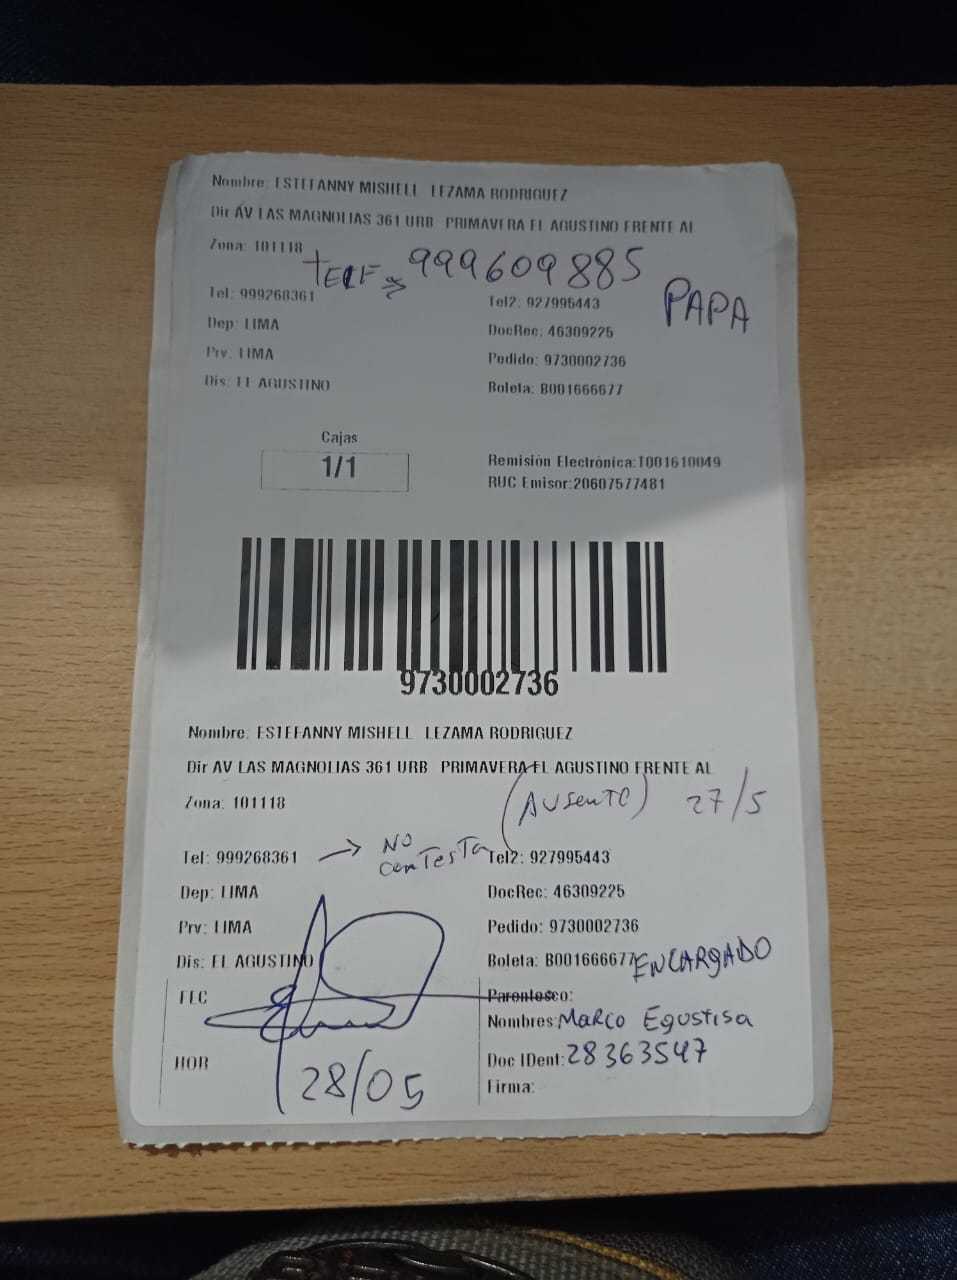 Nombre: ESTEFANNY MISHELL LEZAMA RODRIGUEZ
Dir AV LAS MAGNOLIAS 361 URB PRIMAVERA EL AGUSTINO FRENTE AL
Zona: 101118
TELF 999609885
PAPA
Tel: 999268361 Tel2: 927995443
Dep: LIMA DocRec: 46309225
Prv: LIMA Pedido: 9730002736
Dis: EL AGUSTINO Boleta: B001666677
Cajas
1/1
Remisión Electrónica:T001610049
RUC Emisor:20607577481
9730002736
Nombre: ESTEFANNY MISHELL LEZAMA RODRIGUEZ
Dir AV LAS MAGNOLIAS 361 URB PRIMAVERA EL AGUSTINO FRENTE AL
Zona: 101118 (AUSENTE) 27/5
Tel: 999268361 → NO contesta Tel2: 927995443
Dep: LIMA DocRec: 46309225
Prv: LIMA Pedido: 9730002736
Dis: EL AGUSTINO Boleta: B001666677
ENCARGADO
FEC Parentesco:
Nombres: Marco Egustisa
HOR Doc IDent: 28363547
28/05 Firma: